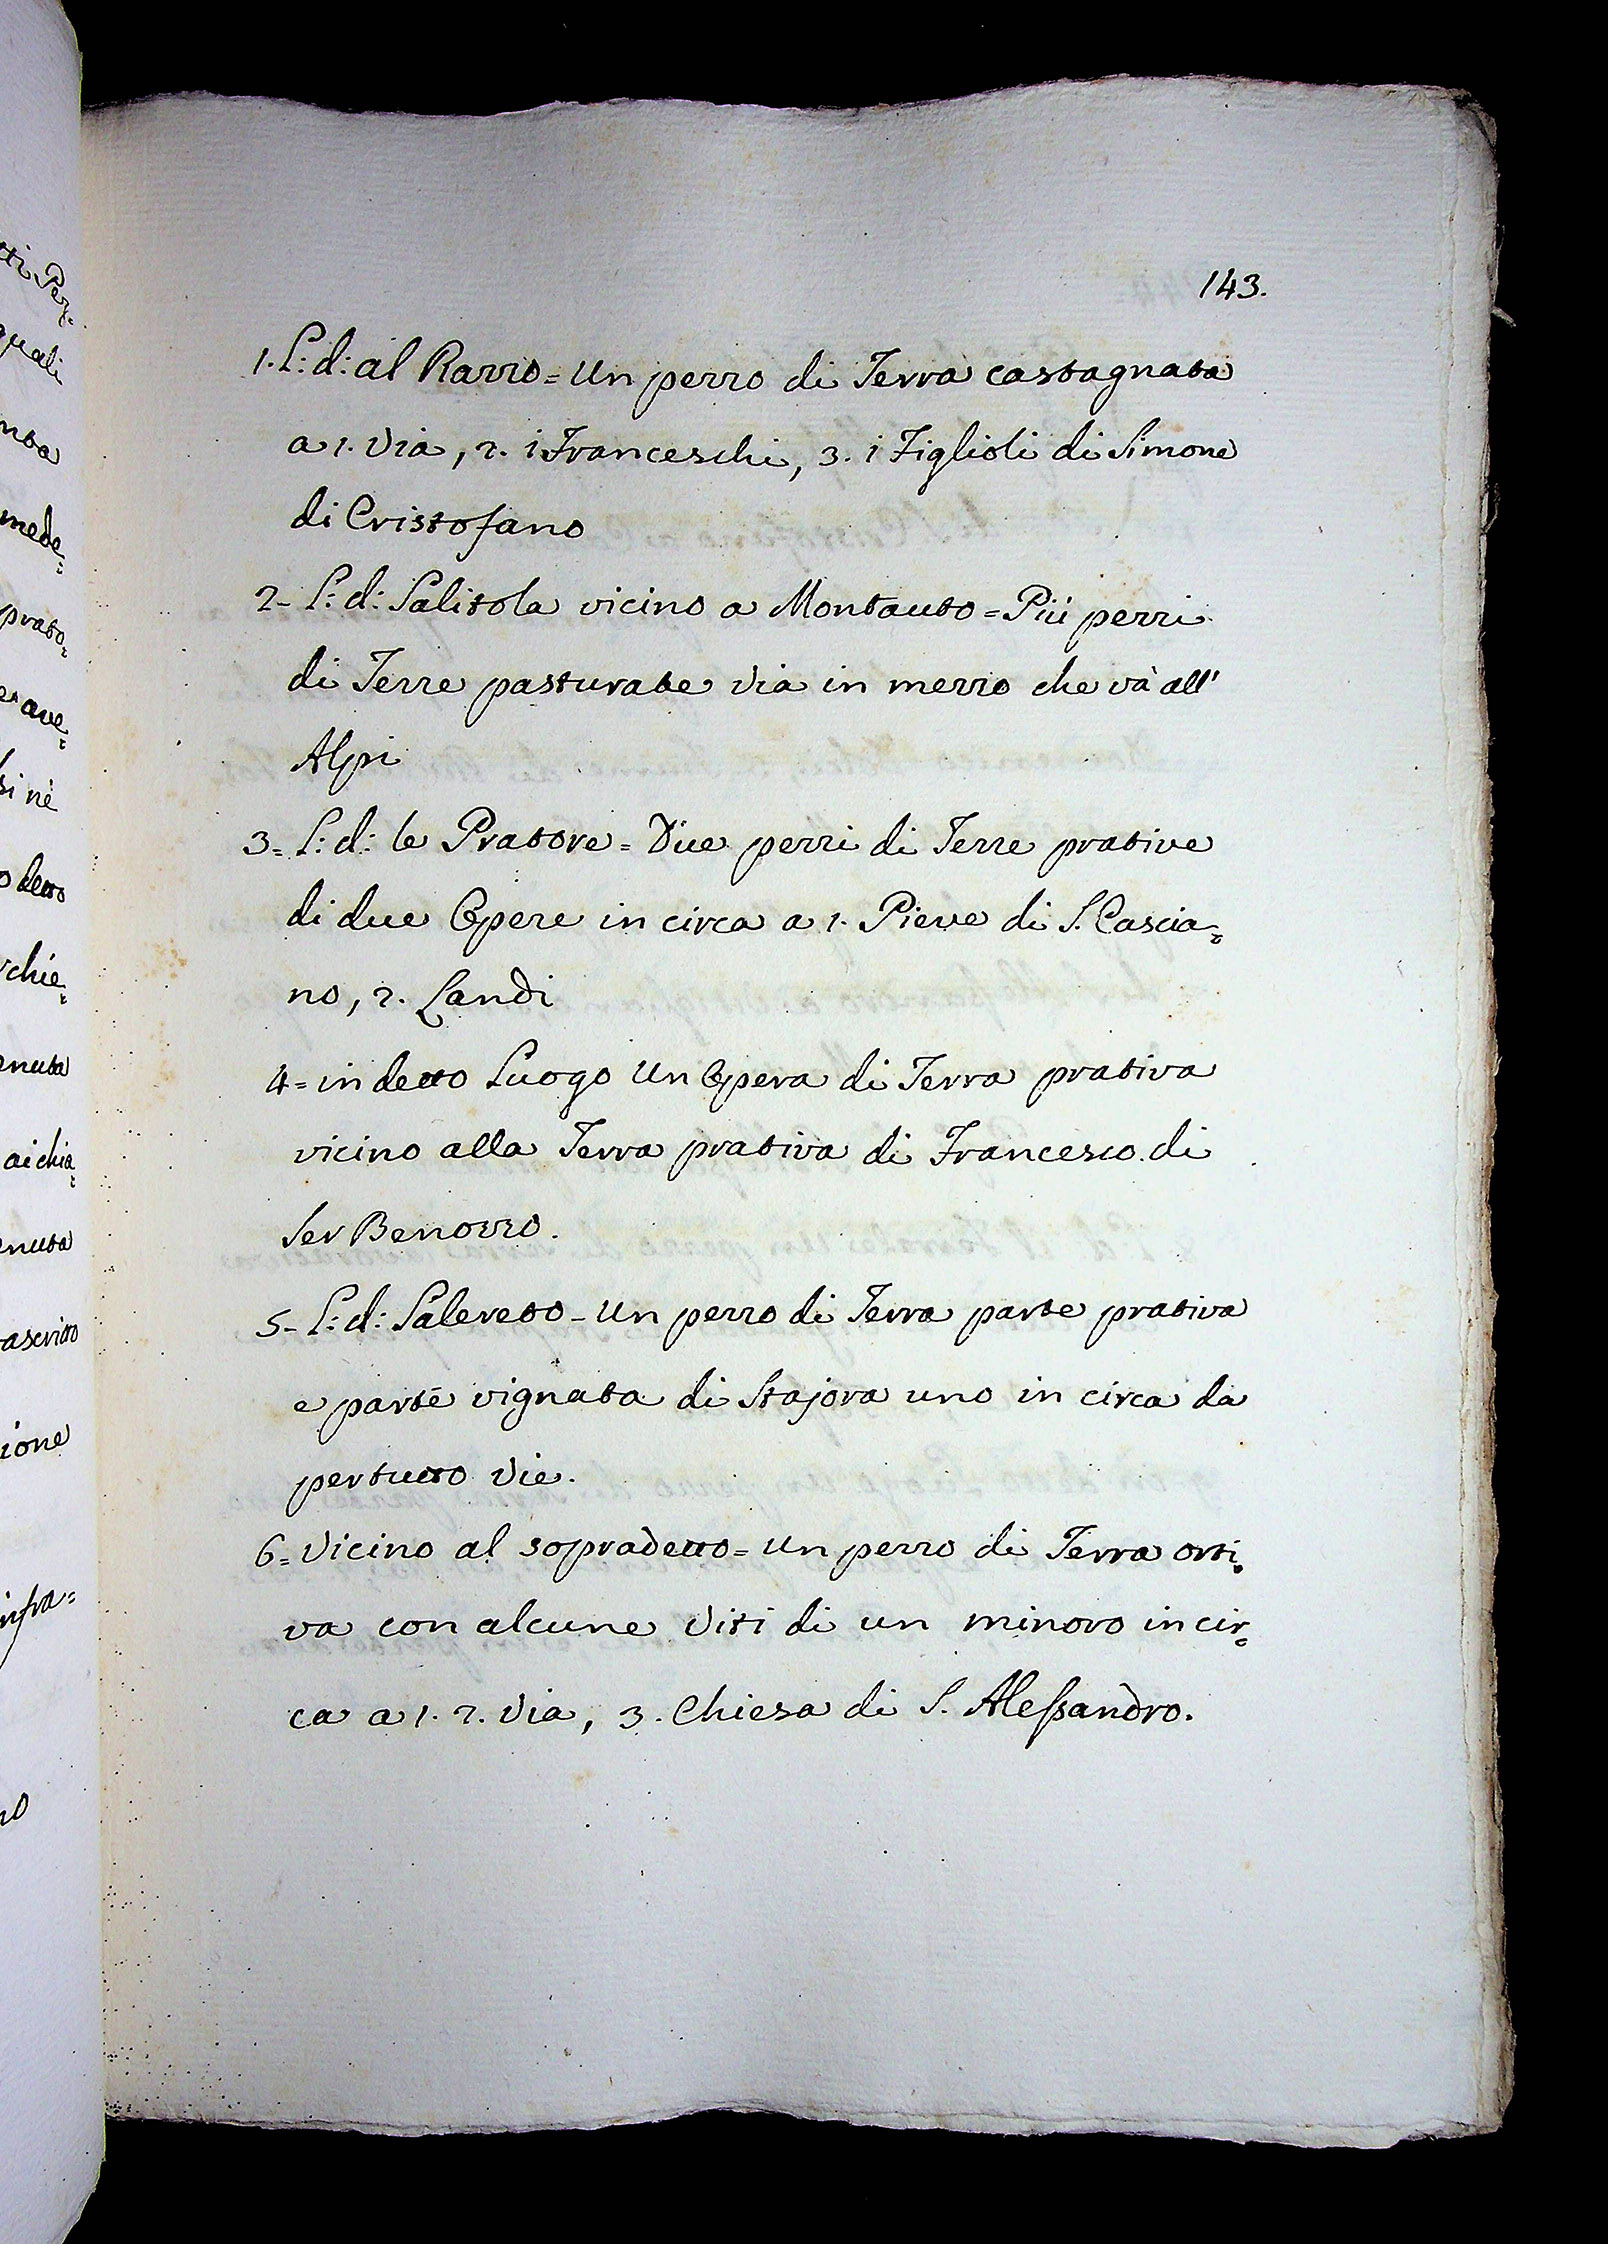 tti Pez-
quali
nta
mede-
prato-
ave-
si nè
o detto
chie-
enuta
ai chia-
enuta
ascritto
ione
infra-
no
143.
1. L: d: al Razzo = Un pezzo di Terra castagnata
a 1. Via, 2. i Franceschi, 3. i Figlioli di Simone
di Cristofano
2- L: d: Salitola vicino a Montauto = Più pezzi
di Terre pasturate Via in mezzo che và all'
Alpi
3= L: d: le Pratore = Due pezzi di Terre prative
di due Opere in circa a 1. Pieve di S. Cascia-
no, 2. Landi
4 = in detto Luogo Un Opera di Terra prativa
vicino alla Terra prativa di Francesco di
Ser Benozzo.
5- L: d: Salereto - Un pezzo di Terra parte prativa
e parte vignata di Stajora uno in circa da
pertutto Vie.
6= Vicino al sopradetto = Un pezzo di Terra orti-
va con alcune Viti di un minoro in cir-
ca a 1. 2. Via, 3. Chiesa di S. Alessandro.